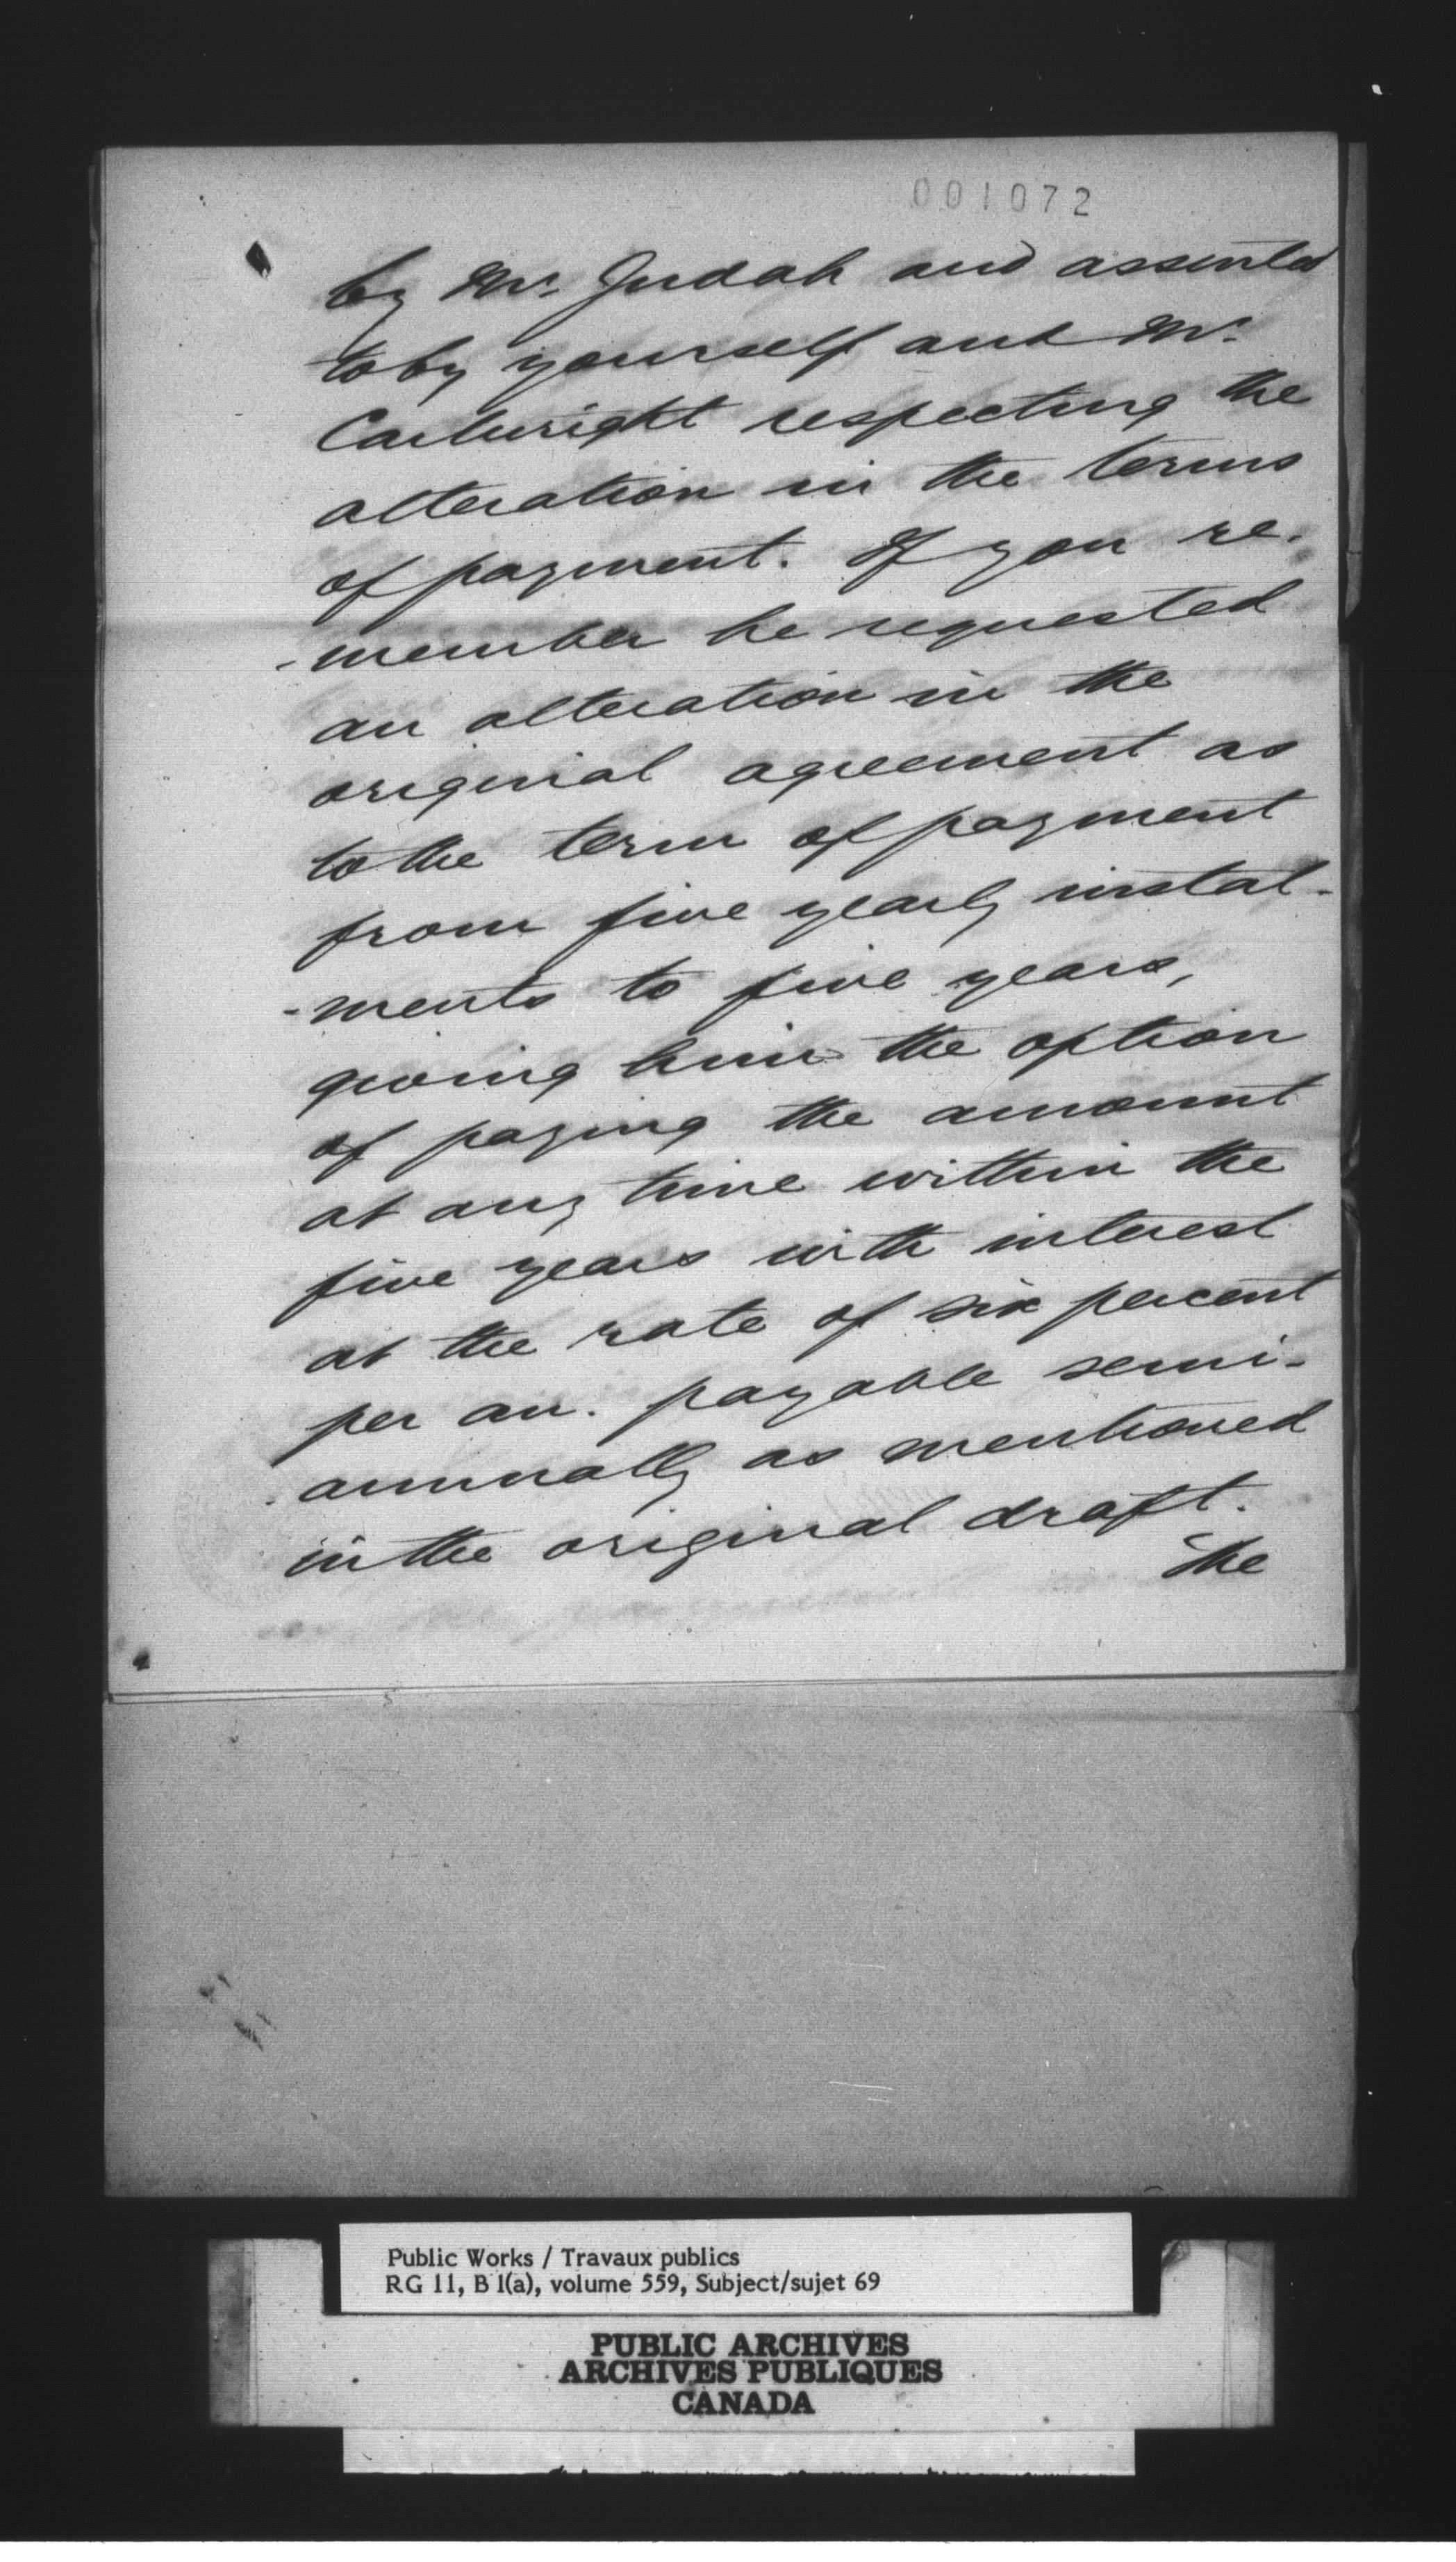 001072
by Mr. Judah and assented
to by yourself and Mr.
Cartwright respecting the
alteration in the terms
of payment. If you re-
-member he requested
an alteration in the
original agreement as
to the term of payment
from five yearly instal-
-ments to five years,
giving him the option
of paying the amount
at any time within the
five years with interest
at the rate of six percent
per an. payable semi-
-annually as mentioned
in the original draft.
The
Public Works / Travaux publics
RG 11, B 1(a), volume 559, Subject/sujet 69
PUBLIC ARCHIVES
ARCHIVES PUBLIQUES
CANADA